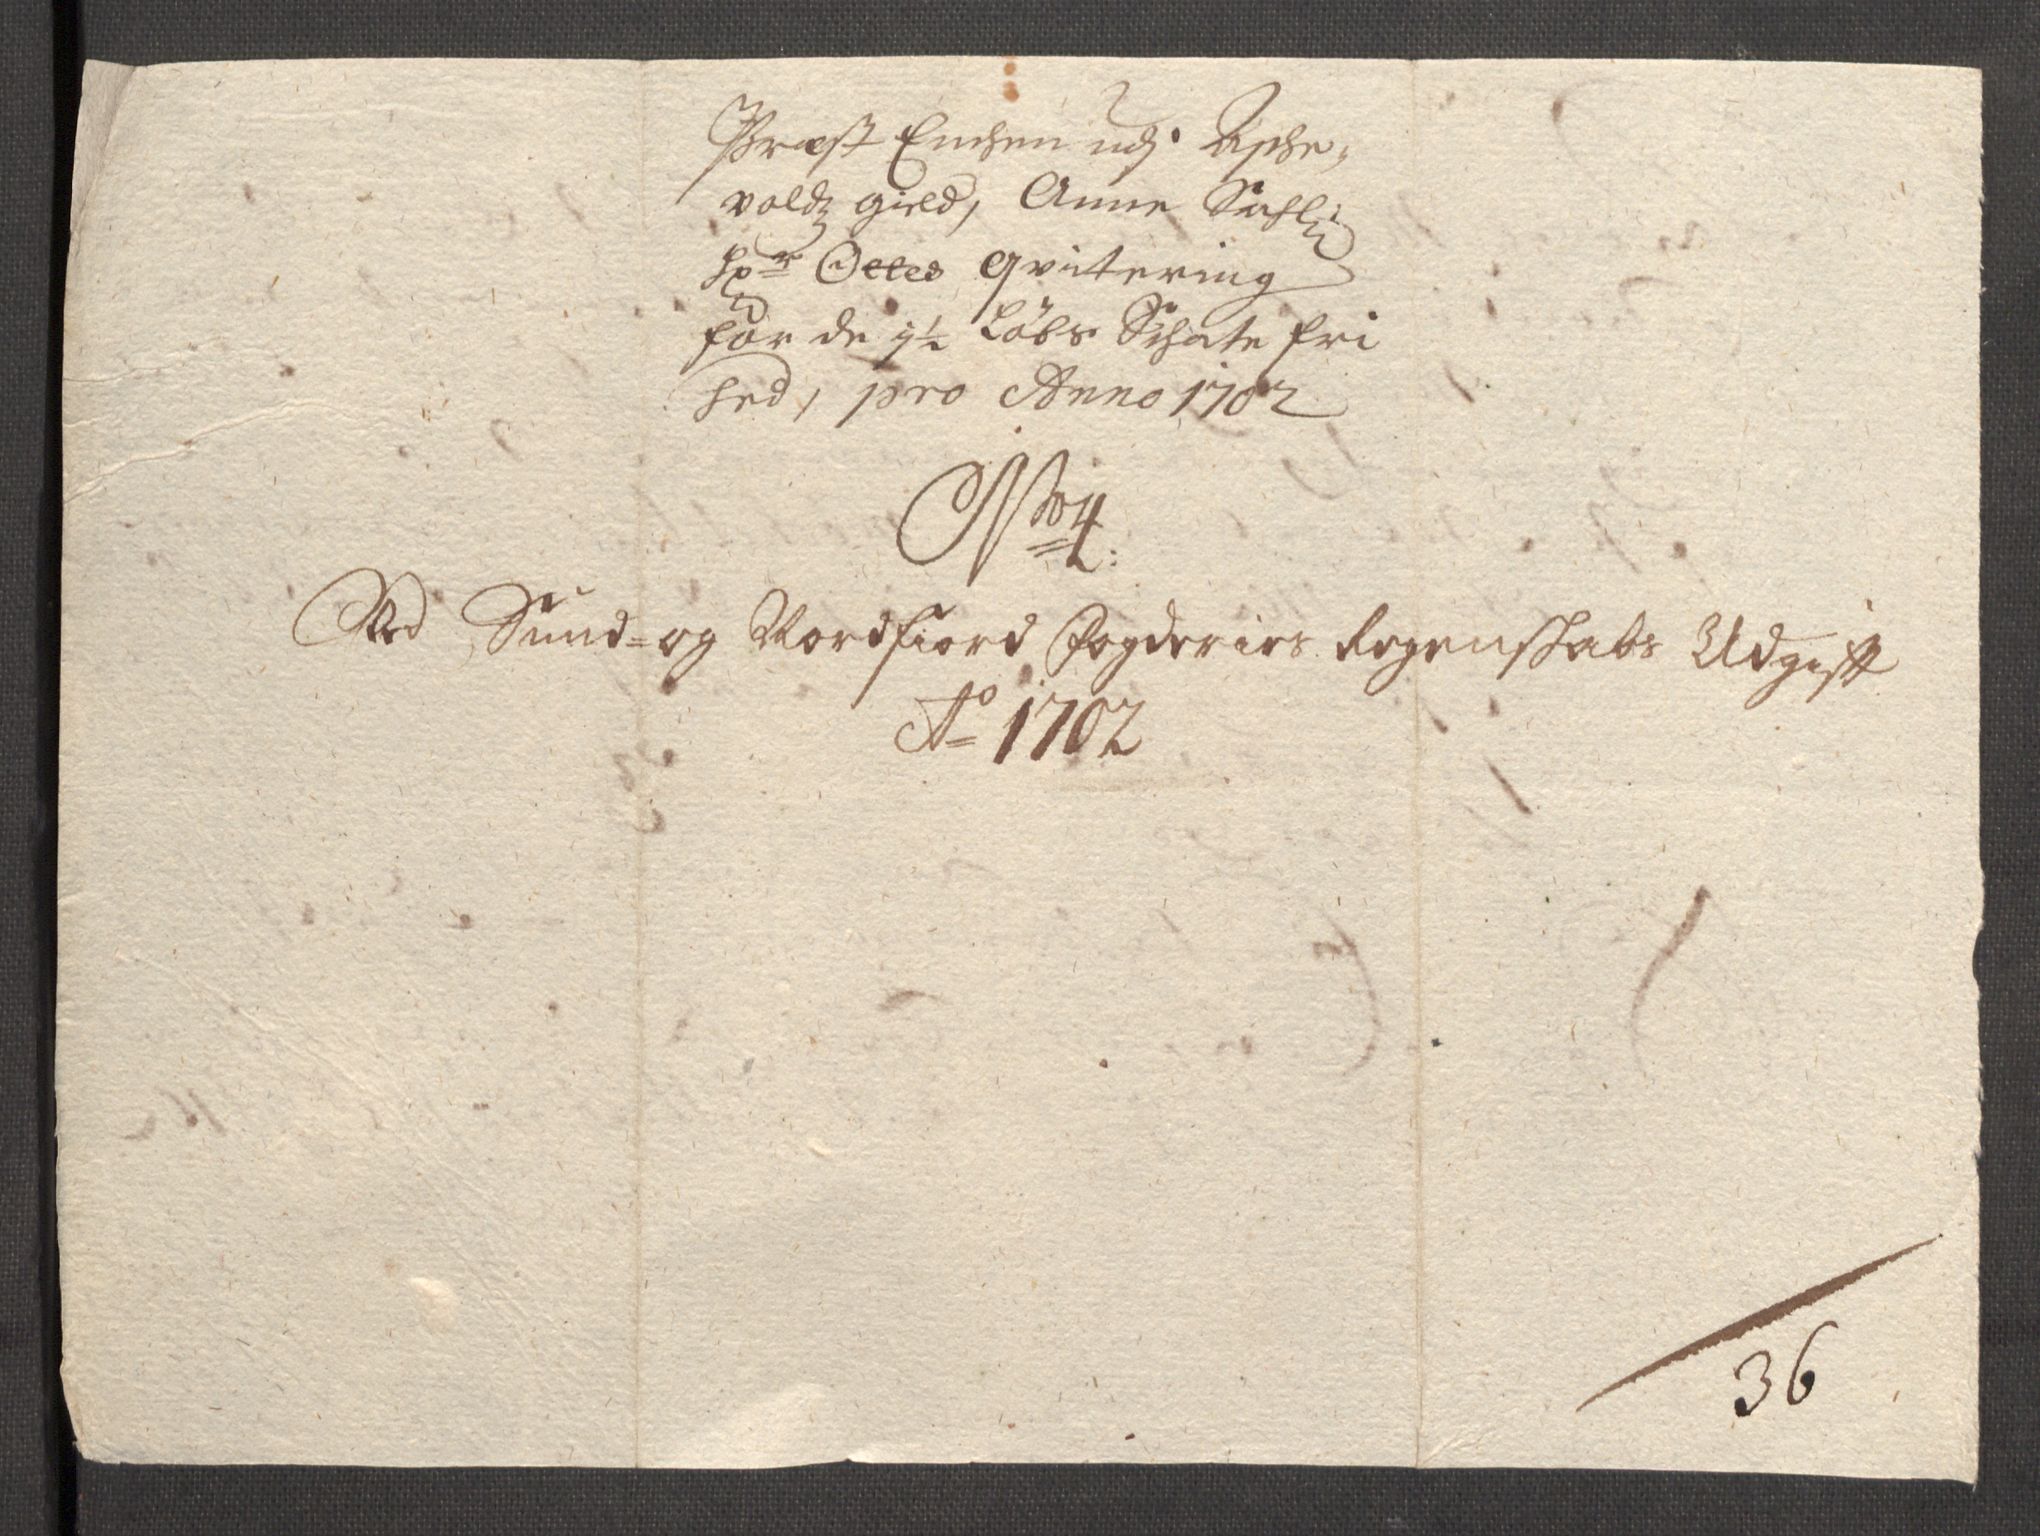 Præst Enchen udj Asche,
voldz gield, Anne Sahl:
hr Ottes qvitering
for de 1½ Løbs Schate fri
hed, pro Anno 1702
No 4:
Ved Sund- og Nordfiord Fogderies Regenskabs Udgift
Ao 1702
36